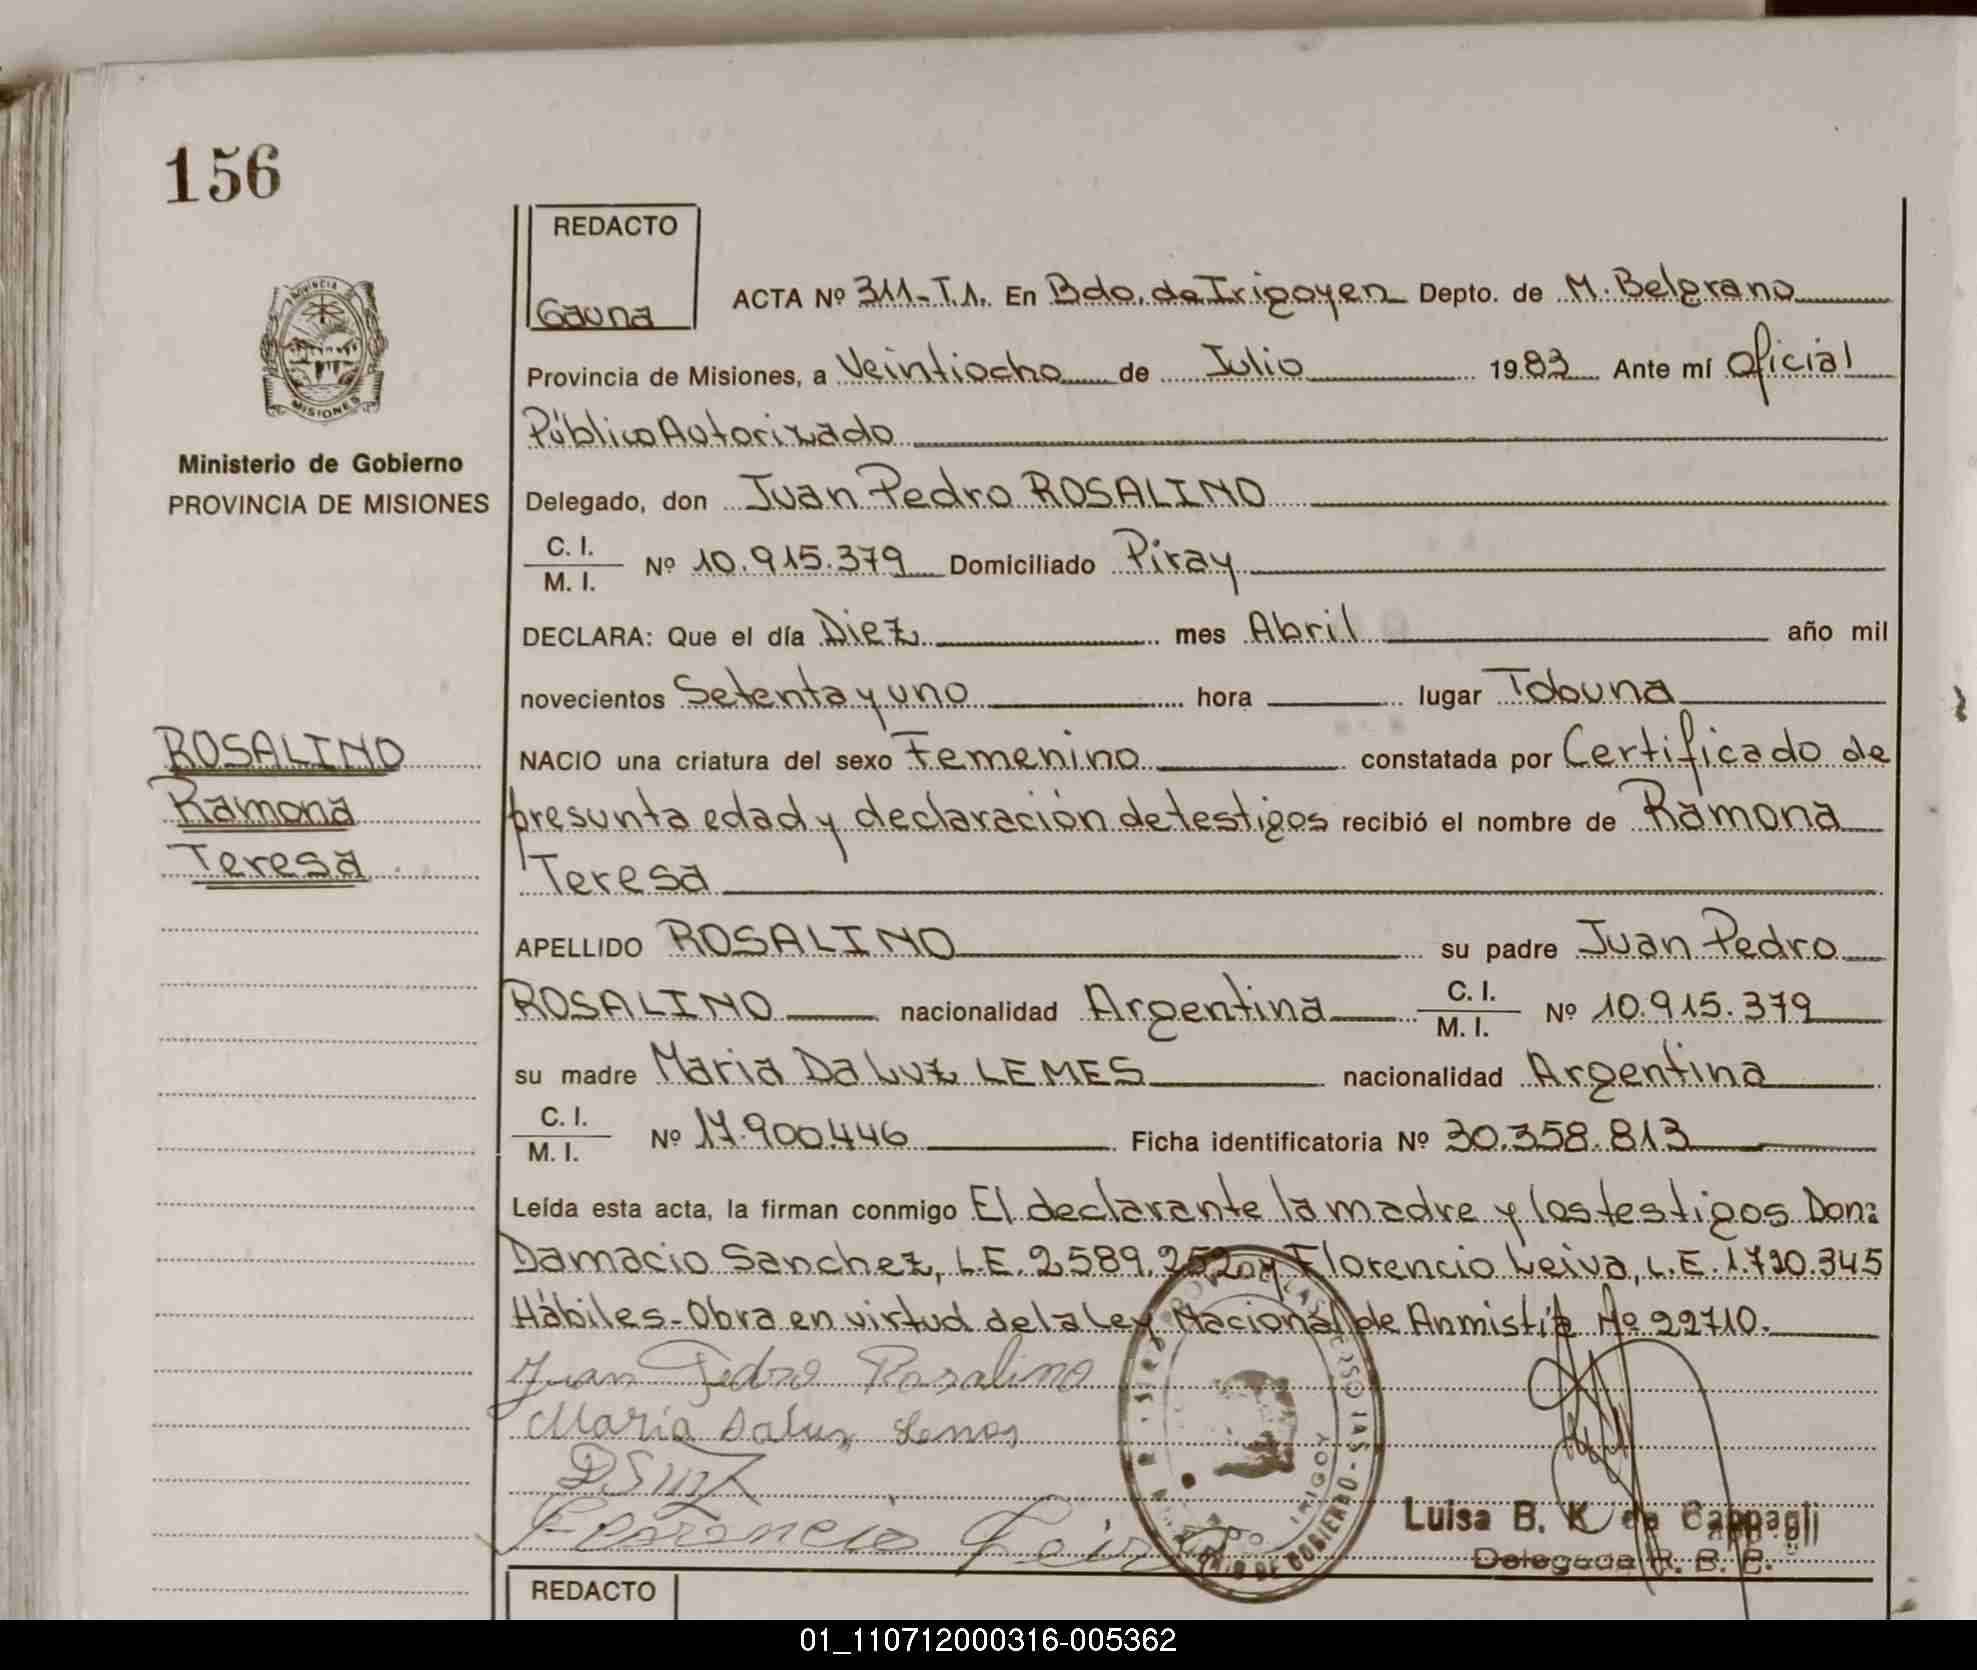 156
REDACTO
Gauna
ACTA Nº 311-T.1. En Bdo. de Irigoyen Depto. de M. Belgrano
Provincia de Misiones, a Veintiocho de Julio 1983 Ante mí Oficial
Público Autorizado
Delegado, don Juan Pedro ROSALINO
C. I.
M. I. Nº 10.915.379 Domiciliado Piray
DECLARA: Que el día Diez mes Abril año mil
novecientos Setenta y uno hora lugar Tobuna
NACIO una criatura del sexo Femenino constatada por Certificado de
presunta edad y declaración de testigos recibió el nombre de Ramona
Teresa
APELLIDO ROSALINO su padre Juan Pedro
ROSALINO nacionalidad Argentina C. I. M. I. Nº 10.915.379
su madre Maria Da Luz LEMES nacionalidad Argentina
C. I.
M. I. Nº 17.900.446 Ficha identificatoria Nº 30.358.813
Leída esta acta, la firman conmigo El declarante la madre y los testigos Don:
Damacio Sanchez, L.E. 2589.252 y Florencio Leiva, L.E. 1.720.345
Hábiles-Obra en virtud de la Ley Nacional de Anmistía Nº 22710.
Juan Pedro Rosalino
Maria Daluz Lemes
Luisa B. K. de Cappagli
Delegada R. B. E.
REDACTO
PROVINCIA
MISIONES
Ministerio de Gobierno
PROVINCIA DE MISIONES
ROSALINO
Ramona
Teresa
01_110712000316-005362